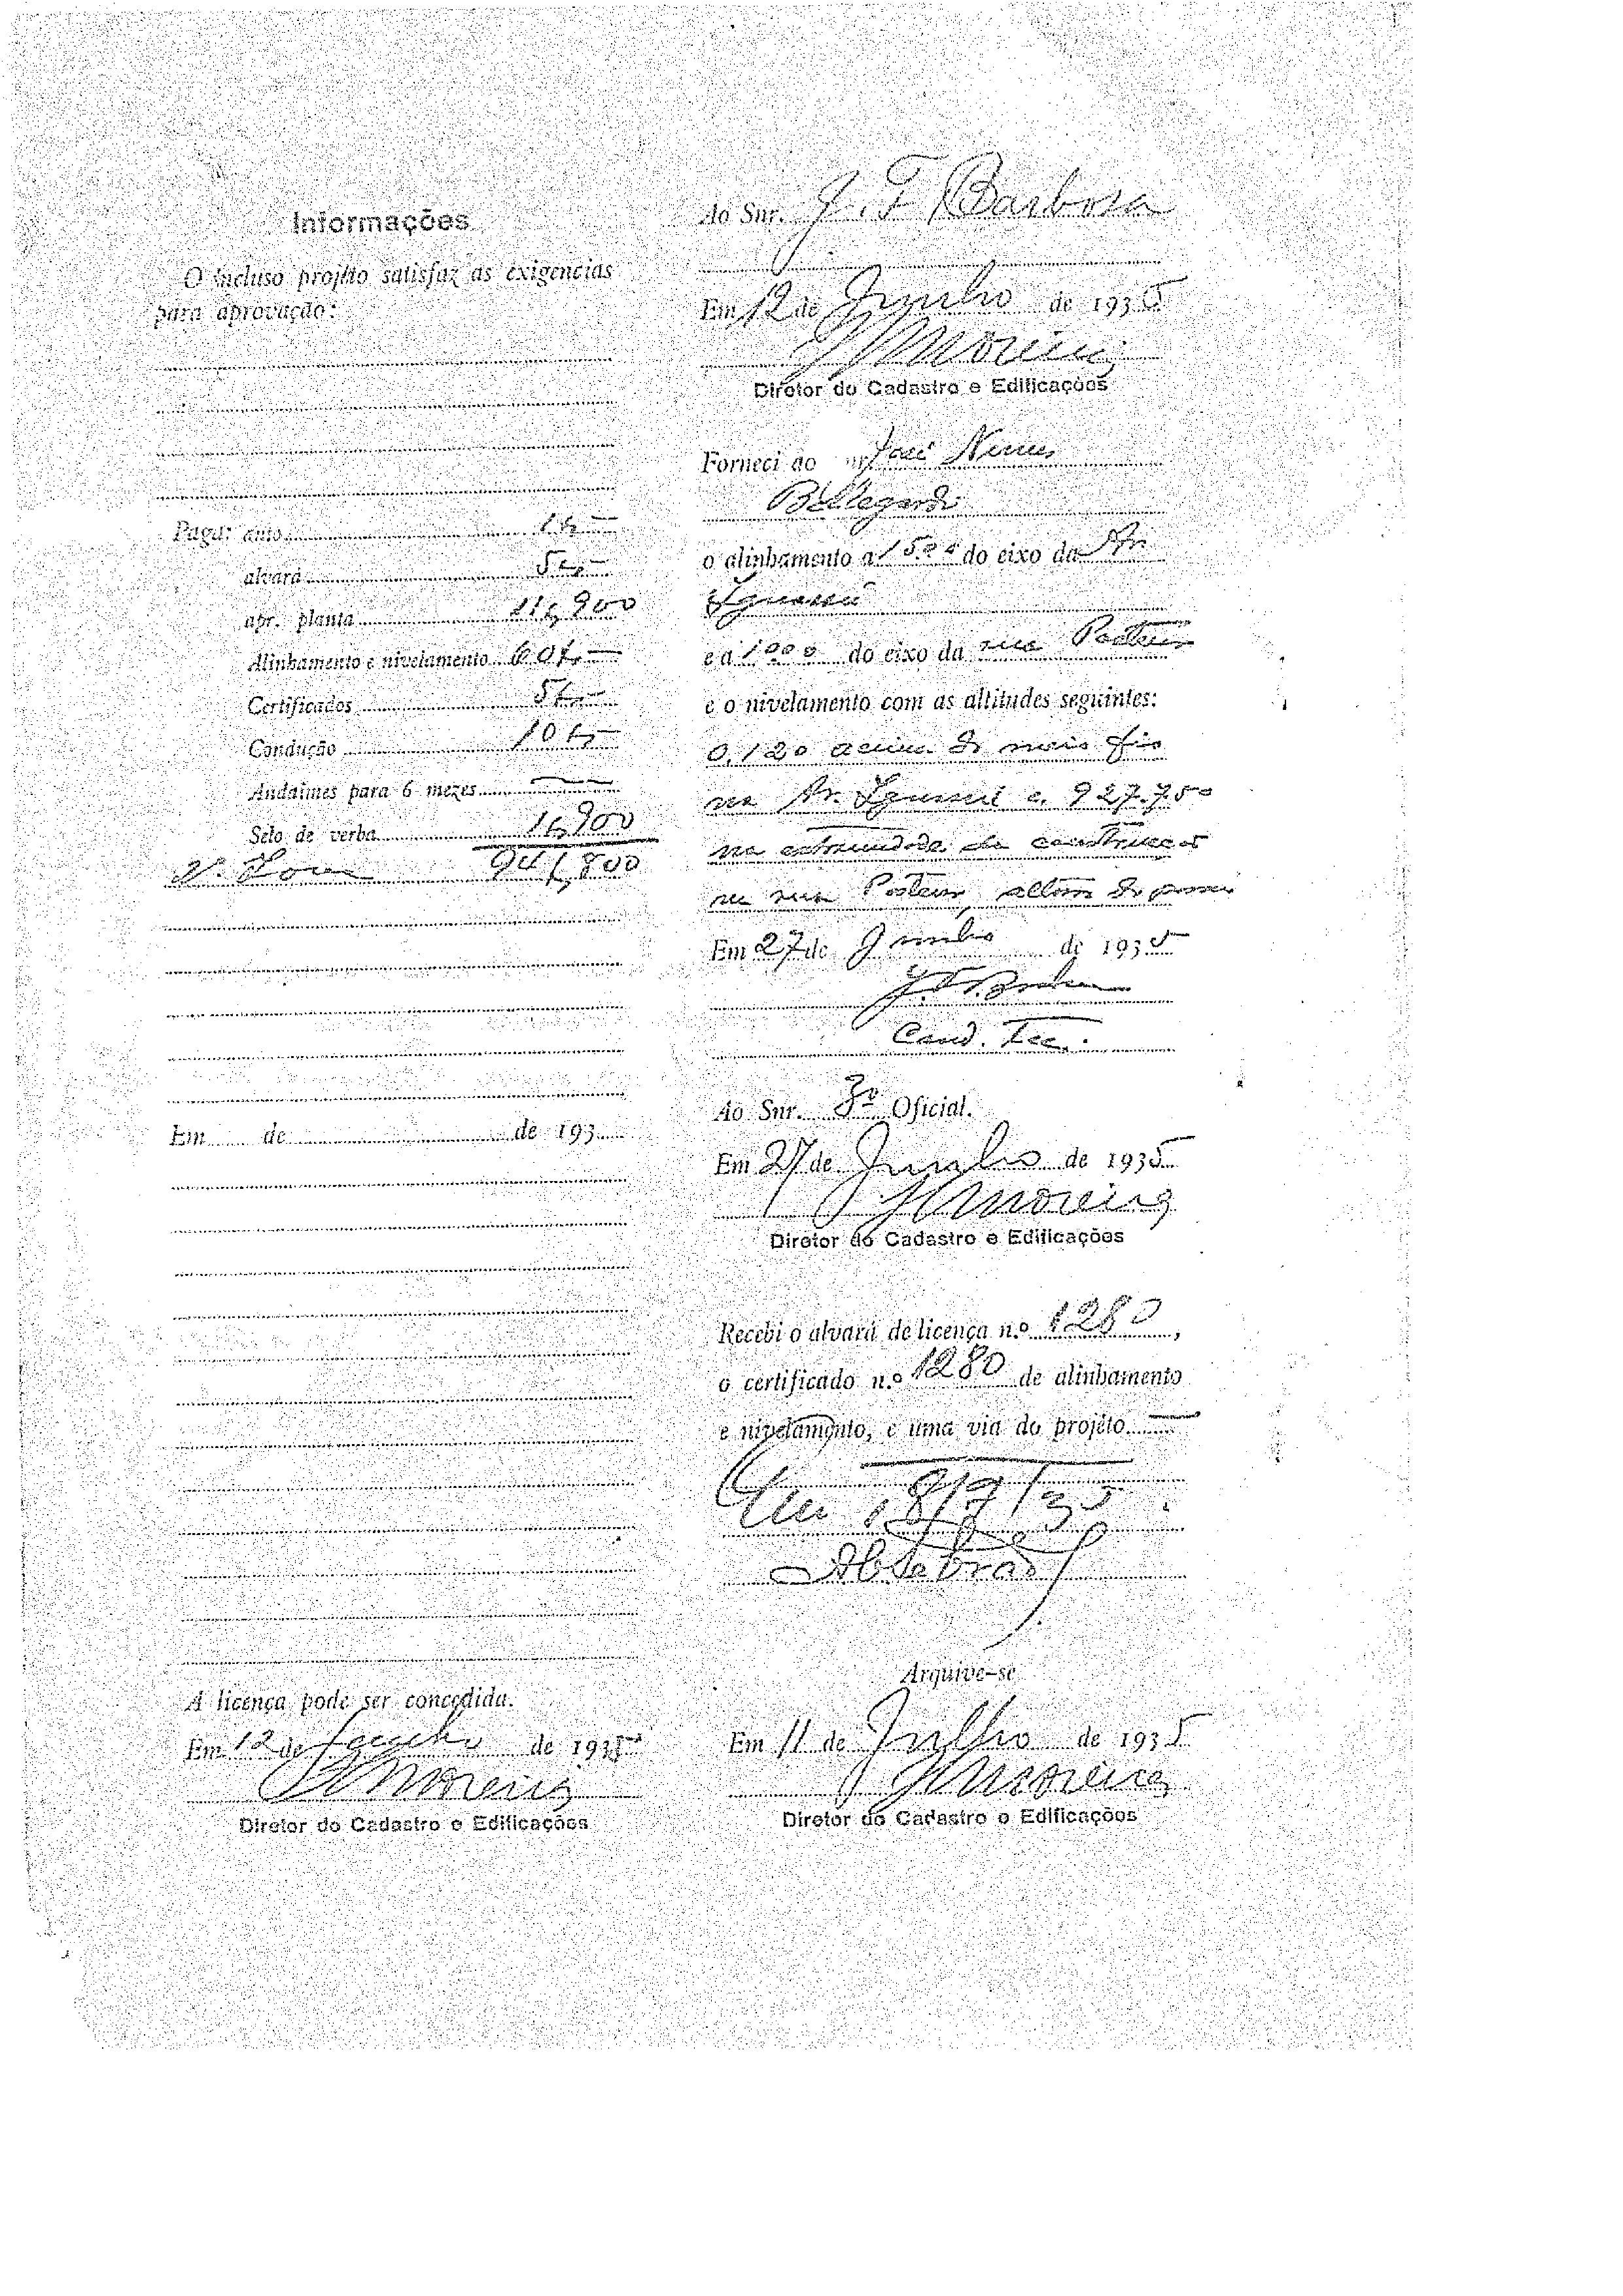 Informações
O incluso projéto satisfaz as exigencias
para aprovação:
Pagar auto 1$—
alvará 5$—
apr. planta 11$,900
Alinhamento e nivelamento 60$—
Certificados 5$—
Condução 10$—
Andaimes para 6 mezes —
Selo de verba 1$,900
94$,800
Em de de 193
A licença pode ser concedida.
Em 12 de Junho de 1935
Moreira
Diretor do Cadastro e Edificações
Ao Snr. J. F. Barbosa
Em 12 de Junho de 1935
Moreira
Diretor do Cadastro e Edificações
Forneci ao José Nunes
Bellegard
o alinhamento a 15.00 do eixo da Av.
Iguassú
e a 10.00 do eixo da rua
e o nivelamento com as altitudes seguintes:
0,120 acima do meio fio
na Av. Iguassú e 927.750
na extremidade da construcção
na rua
Em 27 de Junho de 1935
Cond. Tec.
Ao Snr. 3º Oficial.
Em 27 de Junho de 1935
Moreira
Diretor do Cadastro e Edificações
Recebi o alvará de licença n.º 1280,
o certificado n.º 1280 de alinhamento
e nivelamento, e uma via do projéto —
Em 18/7/35
Arquive-se
Em 11 de Julho de 1935
Moreira
Diretor do Cadastro e Edificações